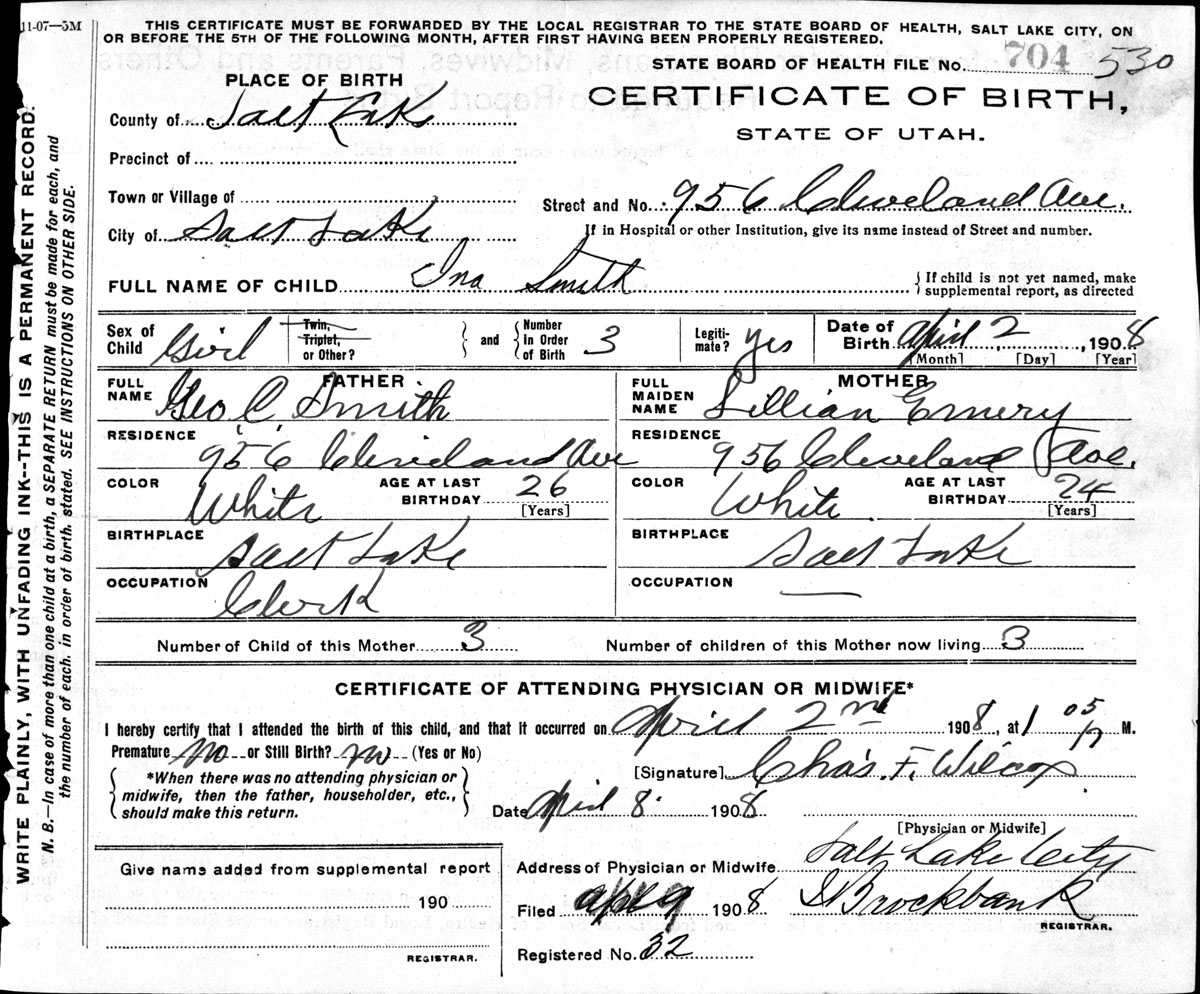 11-07—5M
THIS CERTIFICATE MUST BE FORWARDED BY THE LOCAL REGISTRAR TO THE STATE BOARD OF HEALTH, SALT LAKE CITY, ON
OR BEFORE THE 5TH OF THE FOLLOWING MONTH, AFTER FIRST HAVING BEEN PROPERLY REGISTERED.
STATE BOARD OF HEALTH FILE No. 704 530
PLACE OF BIRTH
CERTIFICATE OF BIRTH,
STATE OF UTAH.
County of Salt Lake
Precinct of
Town or Village of
Street and No. 956 Cleveland Ave.
City of Salt Lake
If in Hospital or other Institution, give its name instead of Street and number.
FULL NAME OF CHILD Ina Smith
If child is not yet named, make
supplemental report, as directed
Sex of Child Girl
Twin, Triplet, or Other?
and
Number In Order of Birth 3
Legiti-mate? Yes
Date of Birth April 2, 1908
[Month] [Day] [Year]
FATHER
FULL NAME Geo C. Smith
MOTHER
FULL MAIDEN NAME Lillian Emery
RESIDENCE 956 Cleveland Ave
RESIDENCE 956 Cleveland Ave.
COLOR White
AGE AT LAST BIRTHDAY 26 [Years]
COLOR White
AGE AT LAST BIRTHDAY 24 [Years]
BIRTHPLACE Salt Lake
BIRTHPLACE Salt Lake
OCCUPATION Clerk
OCCUPATION —
Number of Child of this Mother 3
Number of children of this Mother now living 3
CERTIFICATE OF ATTENDING PHYSICIAN OR MIDWIFE*
I hereby certify that I attended the birth of this child, and that it occurred on April 2nd 1908, at 1 05 M.
Premature no or Still Birth? no (Yes or No)
*When there was no attending physician or
midwife, then the father, householder, etc.,
should make this return.
[Signature] Chas. F. Wilcox
Date April 8 1908
[Physician or Midwife]
Address of Physician or Midwife Salt Lake City
Give name added from supplemental report
190
REGISTRAR.
Filed Apl 9 1908 Brockbank
REGISTRAR.
Registered No. 32
WRITE PLAINLY, WITH UNFADING INK--THIS IS A PERMANENT RECORD.
N. B.—In case of more than one child at a birth, a SEPARATE RETURN must be made for each, and
the number of each, in order of birth, stated. SEE INSTRUCTIONS ON OTHER SIDE.